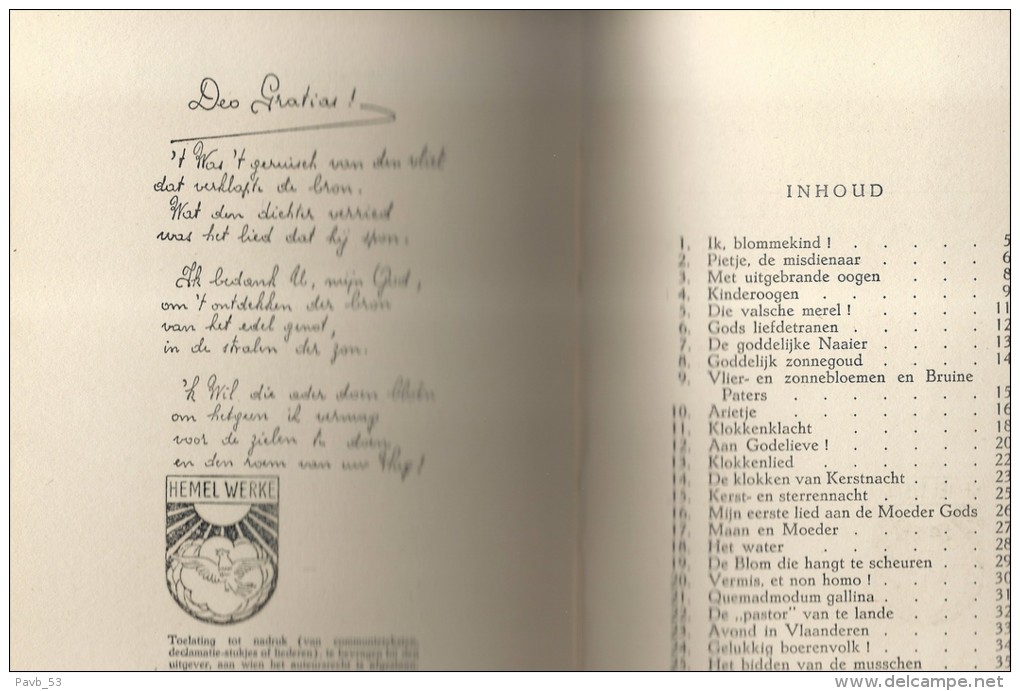 Deo Gratias!
't Was 't geruisch van den vliet
dat verklapte de bron.
Wat den dichter verried
was het lied dat hij spon.
Ik bedank U, mijn God,
om 't ontdekken der bron
van het edel genot,
in de stralen der zon.
'k Wil die ader doen
om hetgeen ik vermag
voor de zielen te doen
en den roem van uw
HEMEL WERKE
Toelating tot nadruk (van communiekanten,
declamatie-stukjes of liederen), te bevragen bij den
uitgever, aan wien het auteursrecht is afgestaan.
INHOUD
1. Ik, blommekind ! . . . . . 5
2. Pietje, de misdienaar . . . . 6
3. Met uitgebrande oogen . . . 8
4. Kinderoogen . . . . . . 9
5. Die valsche merel ! . . . . 11
6. Gods liefdetranen . . . . . 12
7. De goddelijke Naaier . . . . 13
8. Goddelijk zonnegoud . . . . 14
9. Vlier- en zonnebloemen en Bruine
Paters . . . . . . . 15
10. Arietje . . . . . . . 16
11. Klokkenklacht . . . . . 18
12. Aan Godelieve ! . . . . . 20
13. Klokkenlied . . . . . . 22
14. De klokken van Kerstnacht . . . 23
15. Kerst- en sterrennacht . . . . 25
16. Mijn eerste lied aan de Moeder Gods 26
17. Maan en Moeder . . . . . 27
18. Het water . . . . . . 28
19. De Blom die hangt te scheuren . . 29
20. Vermis, et non homo ! . . . . 30
21. Quemadmodum gallina . . . . 31
22. De „pastor" van te lande . . . 32
23. Avond in Vlaanderen . . . . 33
24. Gelukkig boerenvolk ! . . . . 34
25. Het bidden van de musschen . . 35
Pavb_53
www.delcampe.net